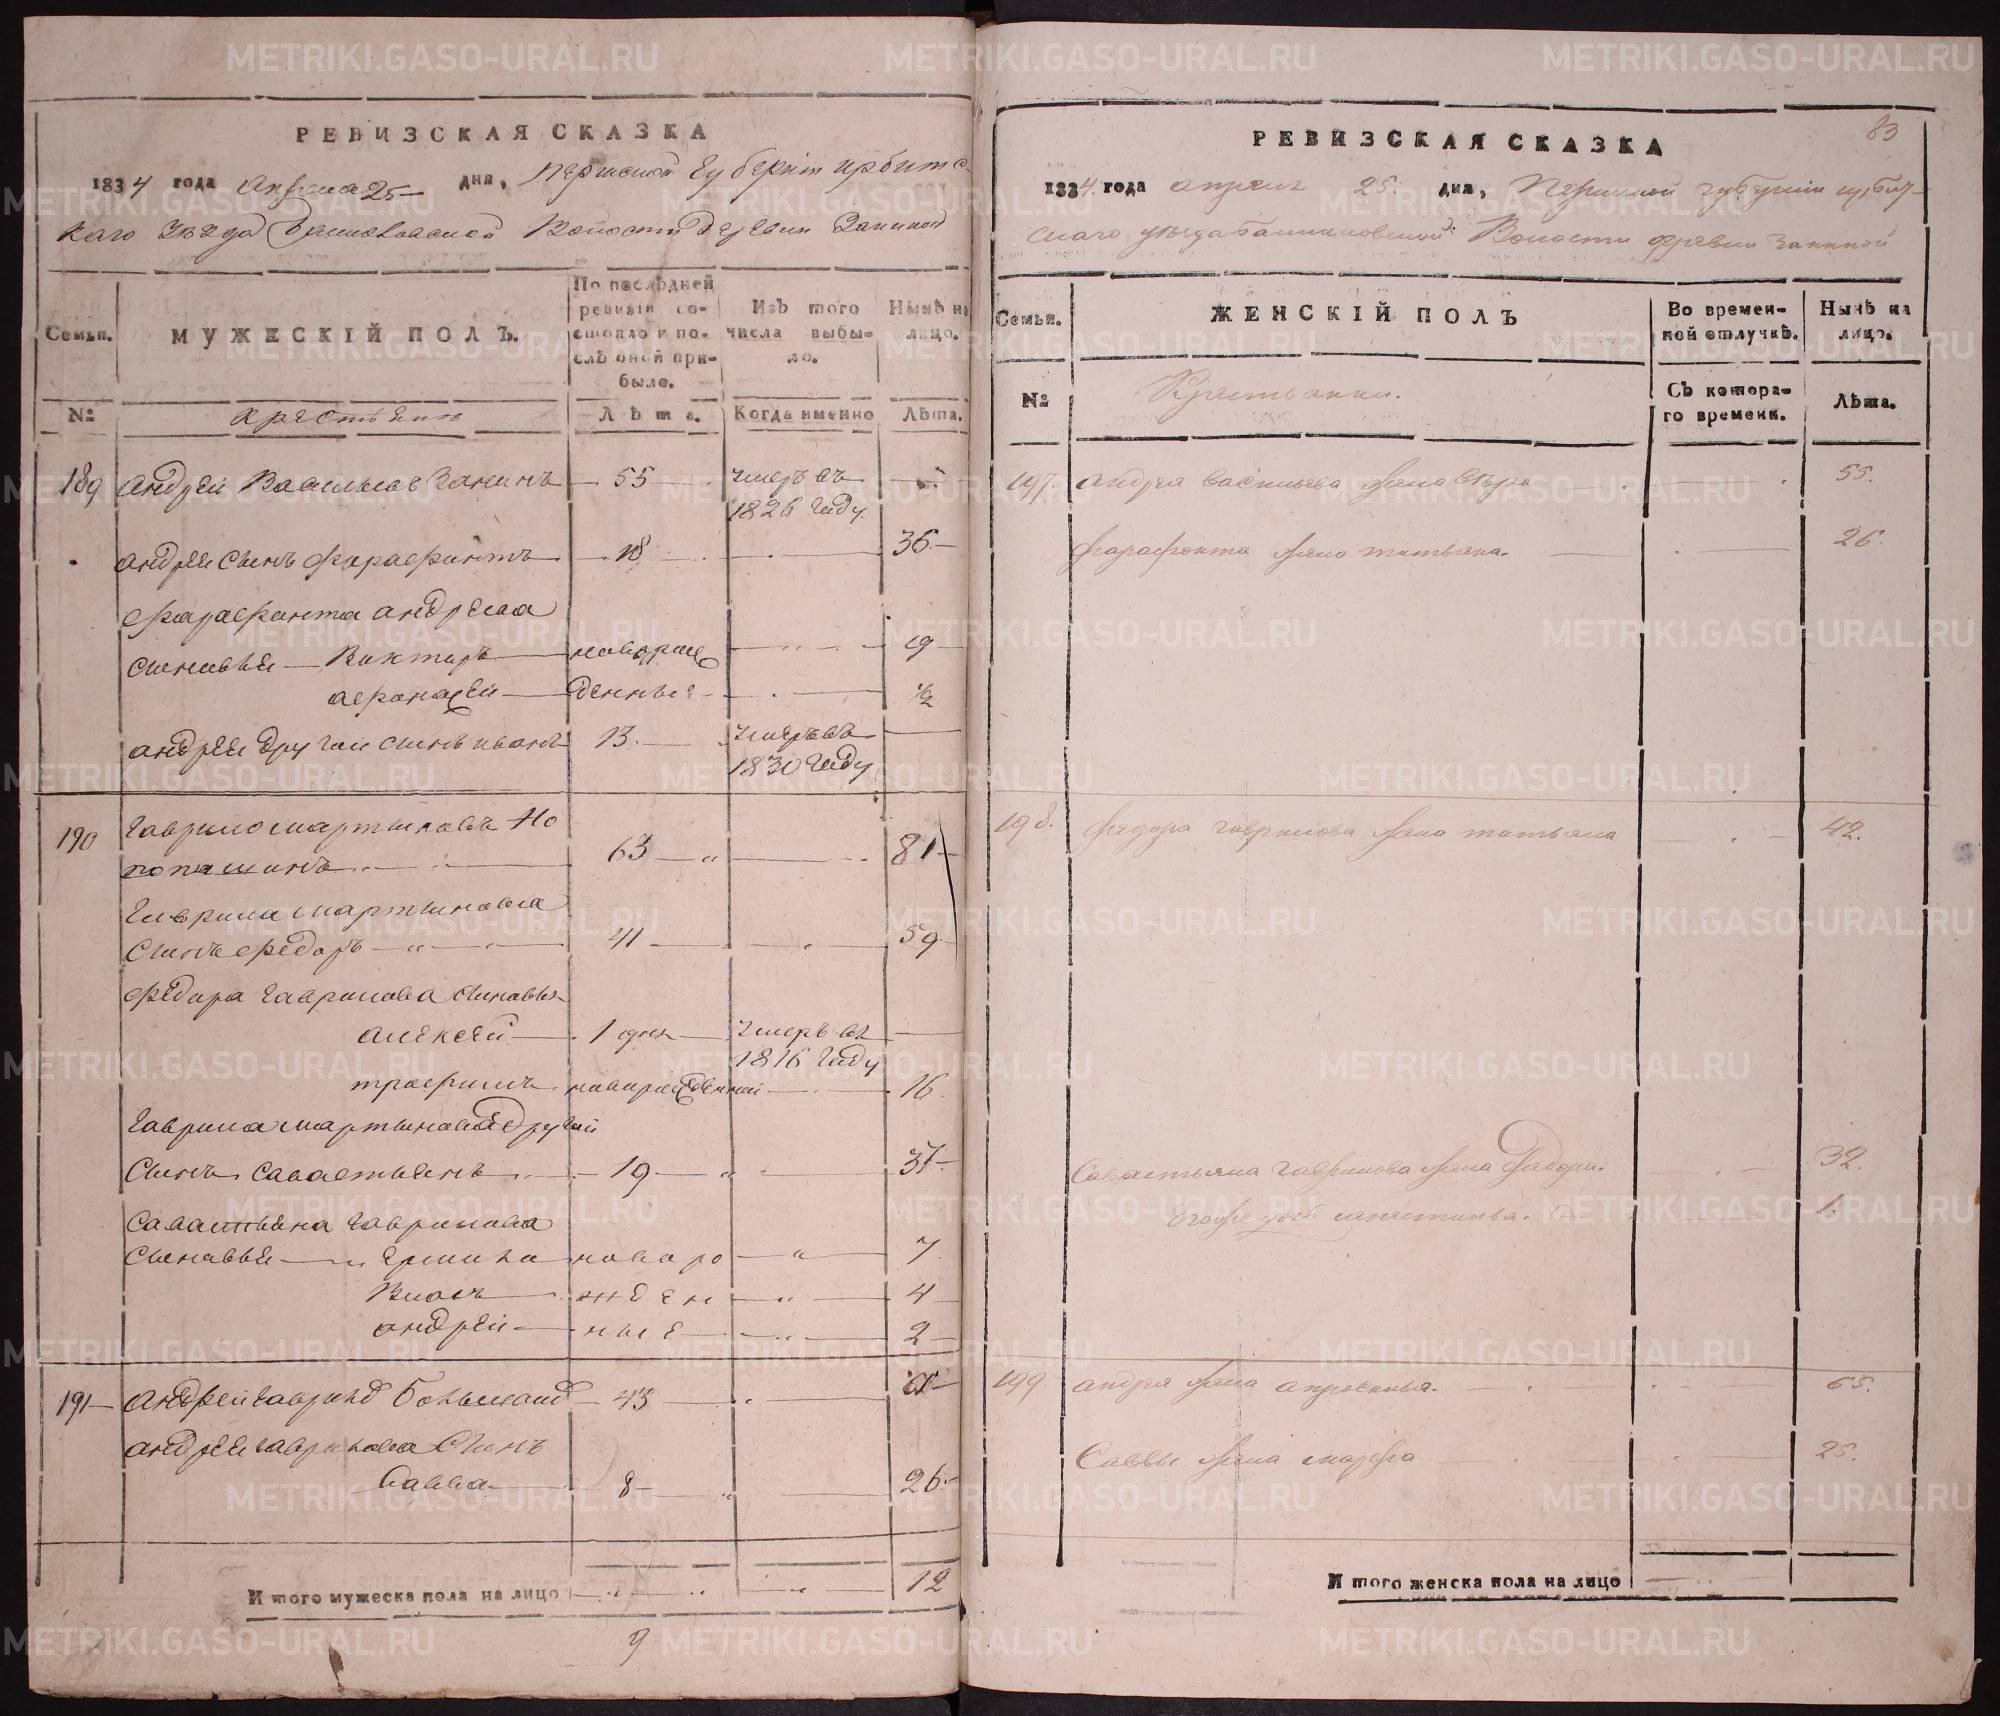 РЕВИЗСКАЯ СКАЗКА
1834 года Апреля 25 дня, Пермской Губернiи Ирбитс-
каго уезда Волости деревни Заниной
Семьи.
МУЖЕСКIЙ ПОЛЪ.
По послѣдней ревизiи со-
стояло и по-
слѣ оной при-
было.
Изъ того
числа выбы-
ло.
Нынѣ на
лицо.
№
Крестьяне
Лѣта.
Когда именно
Лѣта.
189 Андрей Васильевъ Занинъ 55 умеръ въ
1826 году
Андрея сынъ Фарафонтъ 18 36
Фарафонта Андреева
сыновья Викторъ новорож 19
Афонасей денные 1/2
Андрея другой сынъ Иванъ 13 умеръ въ
1830 году
190 Гаврило Мартыновъ
63 81
Гаврила Мартынова
сынъ Федоръ 41 59
Федора Гаврилова сыновья
Алексей 1 дня умеръ въ
1816 году
Трофимъ новорожденной 16
Гаврила Мартынова другой
сынъ Савастьянъ 19 37
Савастьяна Гаврилова
сыновья Ермила новоро 7
Власъ жден 4
Андрей ные 2
191 Андрей Гаврилов Большой 43 61
Андрея Гаврилова сынъ
Савва 8 26
И того мужеска пола на лицо 12
9
РЕВИЗСКАЯ СКАЗКА
83
1834 года апреля 25 дня, Пермской губернiи Ирбит-
скаго уезда Волости деревни Заниной
Семьи.
ЖЕНСКIЙ ПОЛЪ
Во времен-
ной отлучкѣ.
Нынѣ на
лицо.
№
Крестьянки.
Съ котора-
го времени.
Лѣта.
197. Андрея Васильева жена Вѣра 55.
Фарафонта жена Татьяна. 26.
198. Федора Гаврилова жена Татьяна 42.
Савастьяна Гаврилова жена Федора. 32.
1.
199. Андрея жена Апросинья. 65.
Саввы жена Марфа 25.
И того женска пола на лицо
METRIKI.GASO-URAL.RU